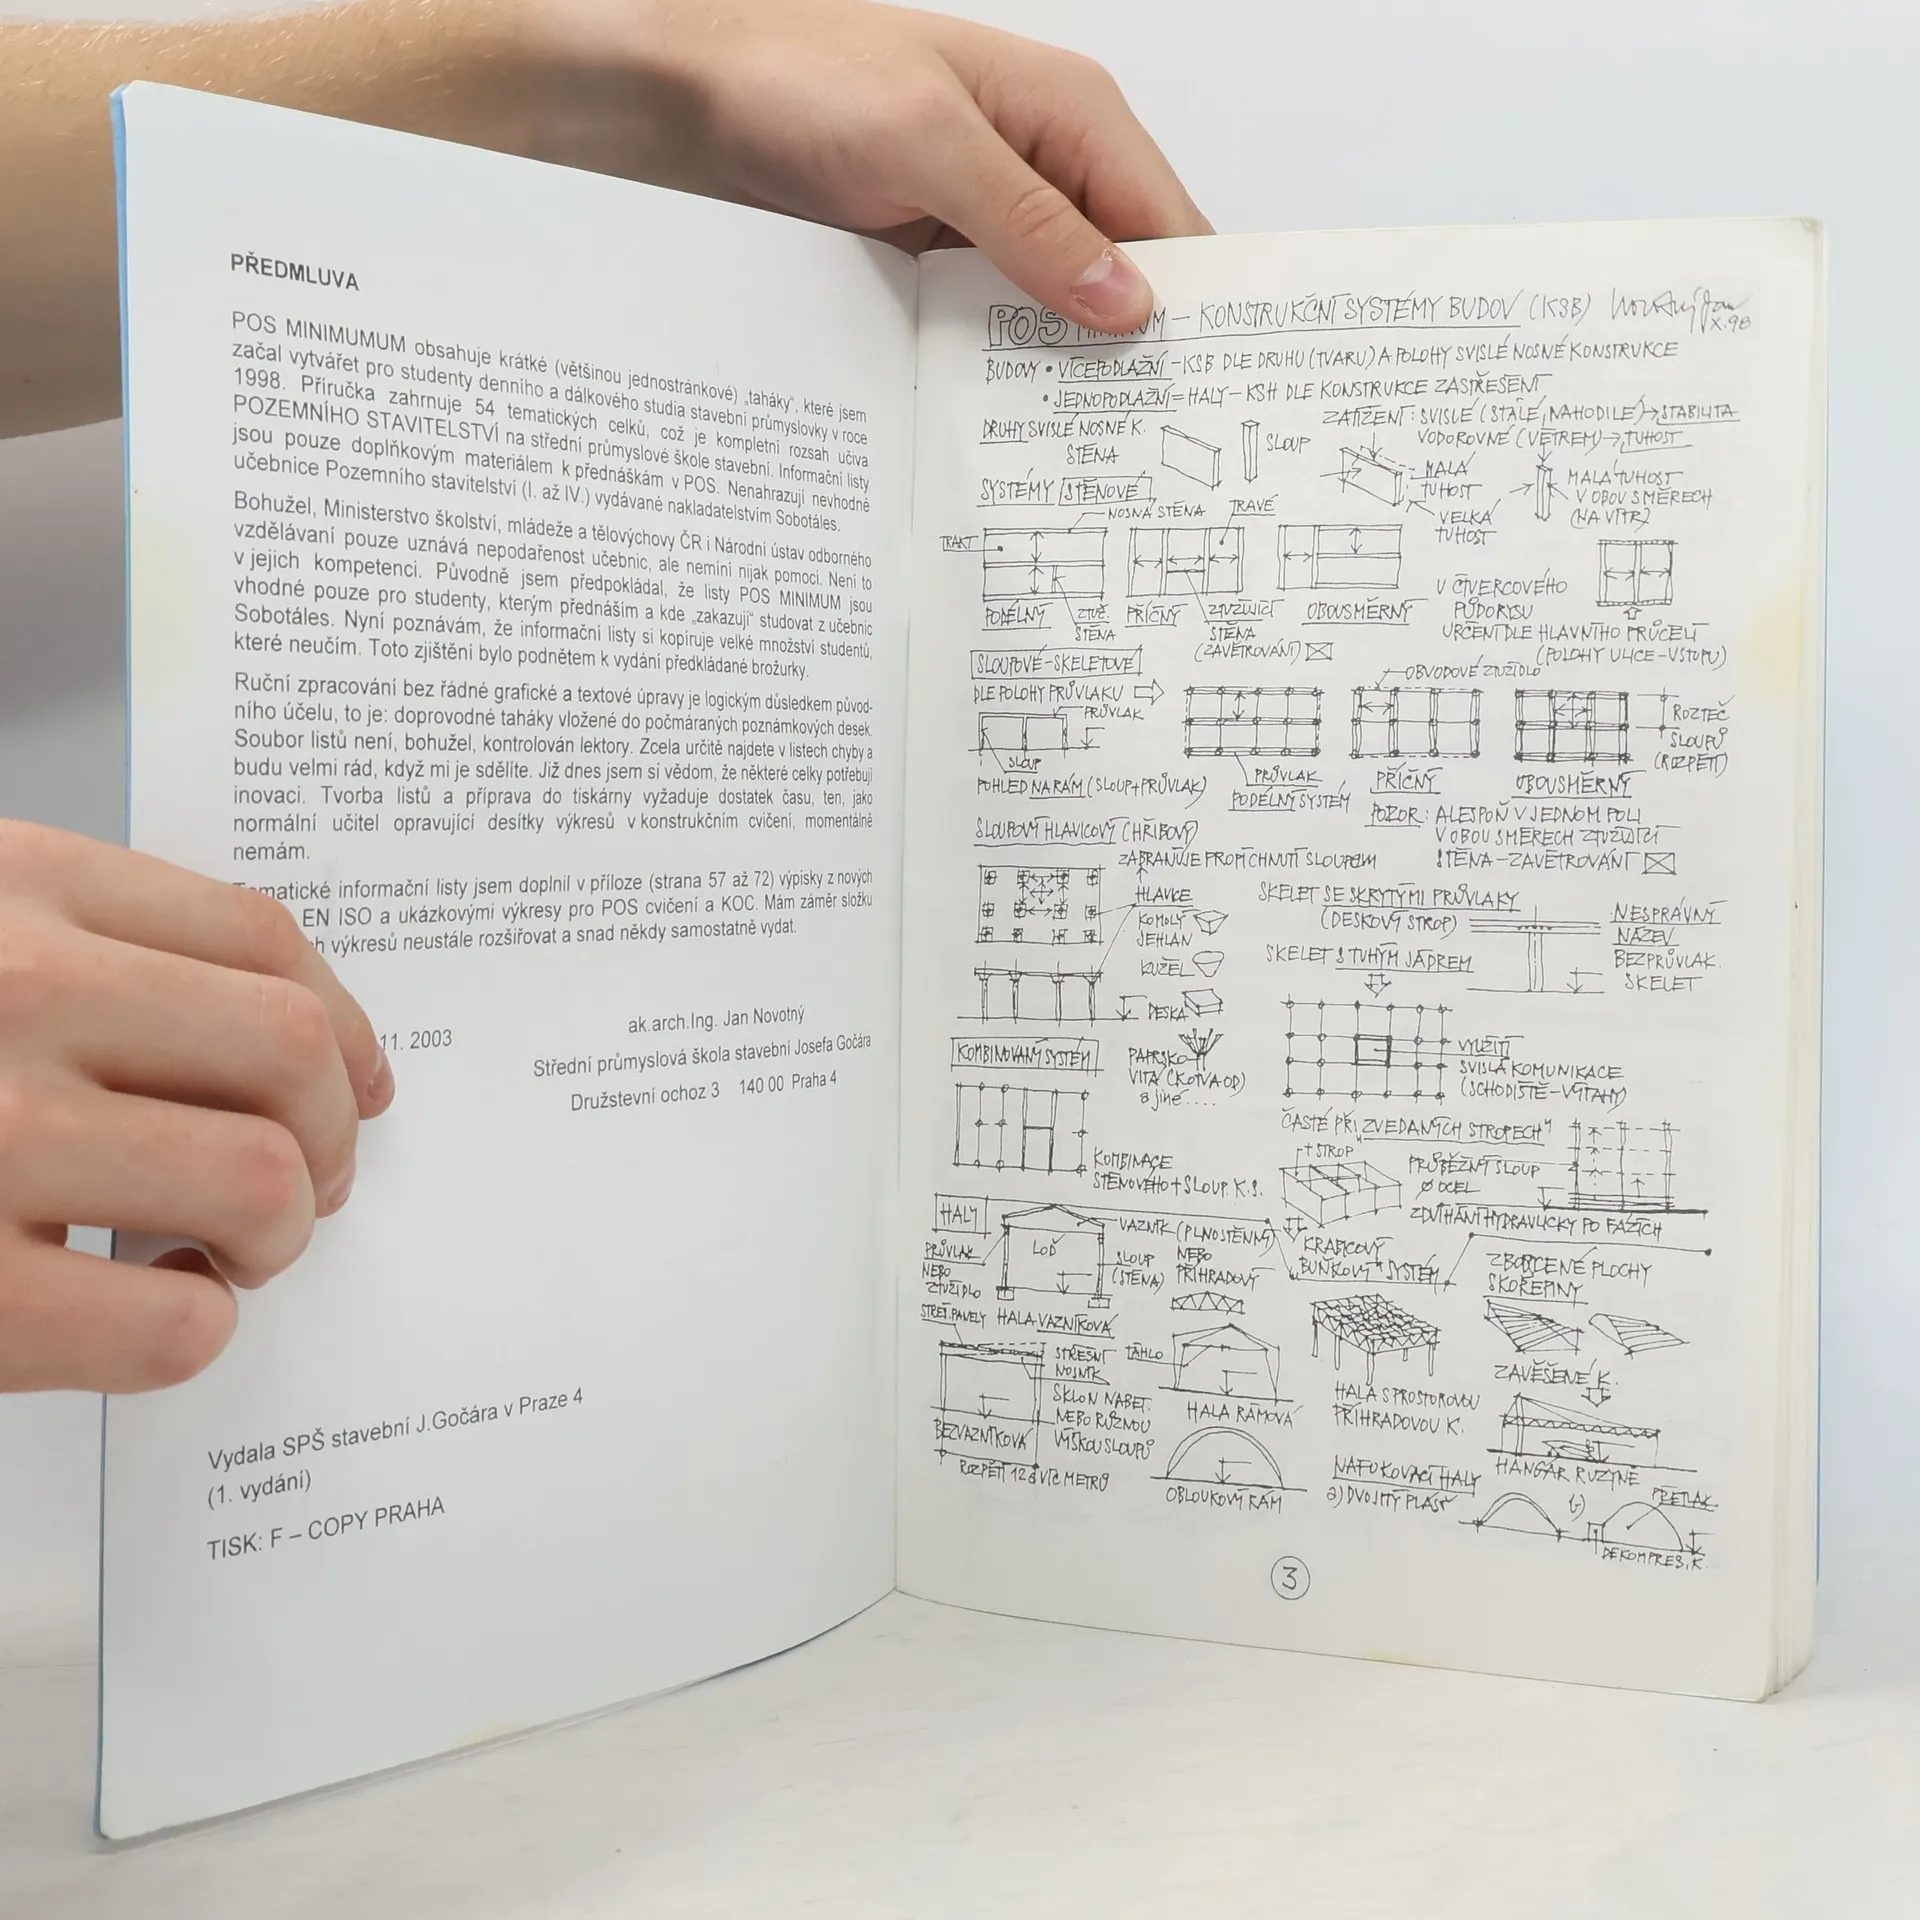 PŘEDMLUVA
POS MINIMUMUM obsahuje krátké (většinou jednostránkové) „taháky“, které jsem
začal vytvářet pro studenty denního a dálkového studia stavební průmyslovky v roce
1998. Příručka zahrnuje 54 tematických celků, což je kompletní rozsah učiva
POZEMNÍHO STAVITELSTVÍ na střední průmyslové škole stavební. Informační listy
jsou pouze doplňkovým materiálem k přednáškám v POS. Nenahrazují nevhodné
učebnice Pozemního stavitelství (I. až IV.) vydávané nakladatelstvím Sobotáles.
Bohužel, Ministerstvo školství, mládeže a tělovýchovy ČR i Národní ústav odborného
vzdělávaní pouze uznává nepodařenost učebnic, ale nemíní nijak pomoci. Není to
v jejich kompetenci. Původně jsem předpokládal, že listy POS MINIMUM jsou
vhodné pouze pro studenty, kterým přednáším a kde „zakazuji“ studovat z učebnic
Sobotáles. Nyní poznávám, že informační listy si kopíruje velké množství studentů,
které neučím. Toto zjištění bylo podnětem k vydání předkládané brožurky.
Ruční zpracování bez řádné grafické a textové úpravy je logickým důsledkem původ-
ního účelu, to je: doprovodné taháky vložené do počmáraných poznámkových desek.
Soubor listů není, bohužel, kontrolován lektory. Zcela určitě najdete v listech chyby a
budu velmi rád, když mi je sdělíte. Již dnes jsem si vědom, že některé celky potřebují
inovaci. Tvorba listů a příprava do tiskárny vyžaduje dostatek času, ten, jako
normální učitel opravující desítky výkresů v konstrukčním cvičení, momentálně
nemám.
informační listy jsem doplnil v příloze (strana 57 až 72) výpisky z nových
EN ISO a ukázkovými výkresy pro POS cvičení a KOC. Mám záměr složku
výkresů neustále rozšiřovat a snad někdy samostatně vydat.
11. 2003
ak.arch.Ing. Jan Novotný
Střední průmyslová škola stavební Josefa Gočára
Družstevní ochoz 3 140 00 Praha 4
Vydala SPŠ stavební J.Gočára v Praze 4
(1. vydání)
TISK: F – COPY PRAHA
POS – KONSTRUKČNÍ SYSTÉMY BUDOV (KSB)
X.98
BUDOVY • VÍCEPODLAŽNÍ – KSB DLE DRUHU (TVARU) A POLOHY SVISLÉ NOSNÉ KONSTRUKCE
• JEDNOPODLAŽNÍ = HALY – KSH DLE KONSTRUKCE ZASTŘEŠENÍ
DRUHY SVISLÉ NOSNÉ K.
STĚNA
SLOUP
ZATÍŽENÍ: SVISLÉ (STÁLÉ, NAHODILÉ) → STABILITA
VODOROVNÉ (VĚTREM) → TUHOST
MALÁ
TUHOST
VELKÁ
TUHOST
MALÁ TUHOST
V OBOU SMĚRECH
(NA VÍTR)
SYSTÉMY STĚNOVÉ
NOSNÁ STĚNA
TRAVÉ
TRAKT
PODÉLNÝ
ZTUŽ.
STĚNA
PŘÍČNÝ
ZTUŽUJÍCÍ
STĚNA
(ZAVĚTROVÁNÍ)
OBOUSMĚRNÝ
U ČTVERCOVÉHO
PŮDORYSU
URČENÍ DLE HLAVNÍHO PRŮČELÍ
(POLOHY ULICE – VSTUPU)
SLOUPOVÉ – SKELETOVÉ
DLE POLOHY PRŮVLAKU
PRŮVLAK
SLOUP
POHLED NA RÁM (SLOUP + PRŮVLAK)
OBVODOVÉ ZTUŽIDLO
PRŮVLAK
PODÉLNÝ SYSTÉM
PŘÍČNÝ
OBOUSMĚRNÝ
ROZTEČ
SLOUPŮ
(ROZPĚTÍ)
POZOR: ALESPOŇ V JEDNOM POLI
V OBOU SMĚRECH ZTUŽUJÍCÍ
STĚNA – ZAVĚTROVÁNÍ
SLOUPOVÝ HLAVICOVÝ (HŘIBOVÝ)
ZABRAŇUJE PROPÍCHNUTÍ SLOUPEM
HLAVICE
KOMOLÝ
JEHLAN
KUŽEL
DESKA
PAPRSKO-
VITÁ (KOTVA OD)
a jiné....
SKELET SE SKRYTÝMI PRŮVLAKY
(DESKOVÝ STROP)
NESPRÁVNÝ
NÁZEV
BEZPRŮVLAK.
SKELET
SKELET S TUHÝM JÁDREM
VYUŽITÍ
SVISLÁ KOMUNIKACE
(SCHODIŠTĚ – VÝTAHY)
KOMBINOVANÝ SYSTÉM
KOMBINACE
STĚNOVÉHO + SLOUP. K.S.
ČASTÉ PŘI „ZVEDANÝCH STROPECH“
+ STROP
PRŮBĚŽNÝ SLOUP
Ø OCEL
ZDVÍHÁNÍ HYDRAULICKY PO FÁZÍCH
KRABICOVÝ
„BUŇKOVÝ“ SYSTÉM
HALY
PRŮVLAK
NEBO
ZTUŽIDLO
LOĎ
VAZNÍK (PLNOSTĚNNÝ)
NEBO
PŘÍHRADOVÝ
SLOUP
(STĚNA)
HALA VAZNÍKOVÁ
STŘEŠ. PANELY
STŘEŠNÍ
NOSNÍK
SKLON NABET.
NEBO RŮZNOU
VÝŠKOU SLOUPŮ
BEZVAZNÍKOVÁ
ROZPĚTÍ 12 a VÍC METRŮ
TÁHLO
HALA RÁMOVÁ
OBLOUKOVÝ RÁM
HALA S PROSTOROVOU
PŘÍHRADOVOU K.
ZBORCENÉ PLOCHY
SKOŘEPINY
ZAVĚŠENÉ K.
HANGÁR RUZYNĚ
NAFUKOVACÍ HALY
a) DVOJITÝ PLÁŠŤ
b)
PŘETLAK
DEKOMPRES. K.
3